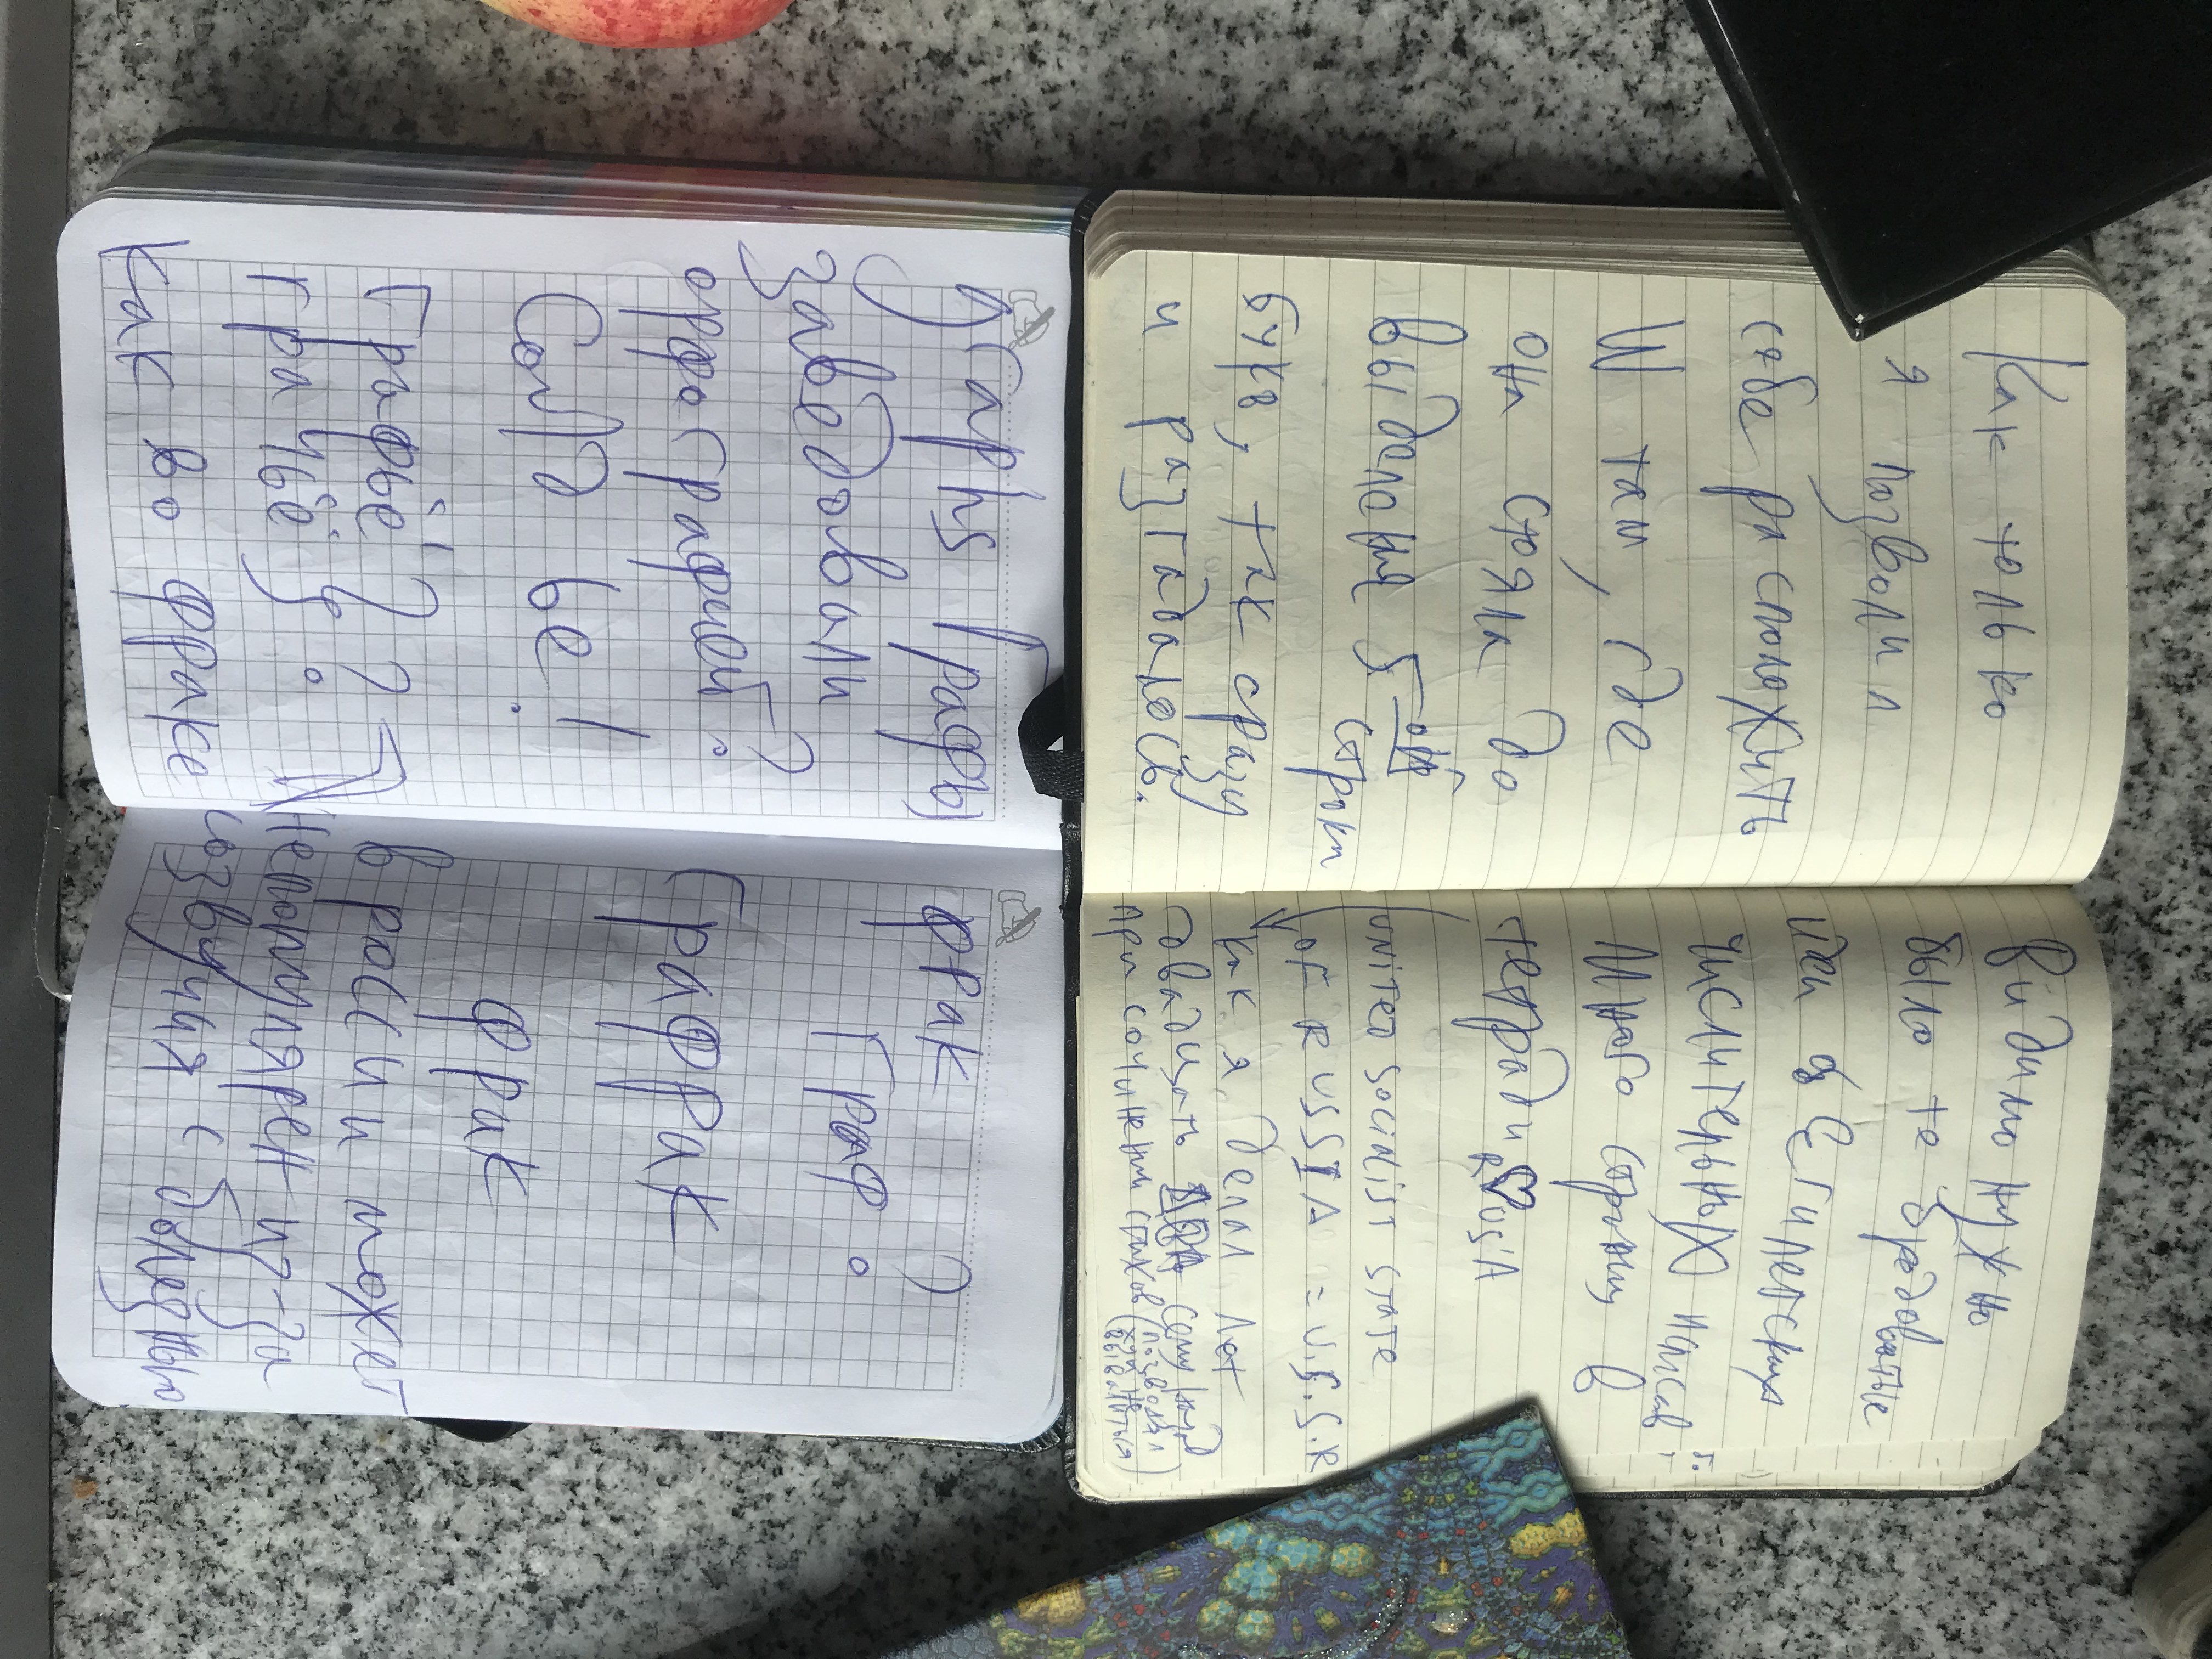 Как только
я позволил
себе расположить
Ш там, где
она стояла до
выделения 5-ой
строки
букв, так сразу
и разгадалось.
Видимо нужно
было те бредовые
идеи об Египетских
числительных писать
Много страниц в
тетради R♡US'A
(UNITED SOCIALIST STATE
OF RUSSIA = U.S.S.R
как я делал лет
двадцать семь назад
при сочинении стихов (позволял
хуй не
вываниться)
graphs Графы
Заведовали
орфографией?
Сольд ье!
Графьё?
грачьё?
Как во фраке
фрак ?
Граф?
Графрак
фрак
в россии может
непопулярен из-за
созвучия с болезнью